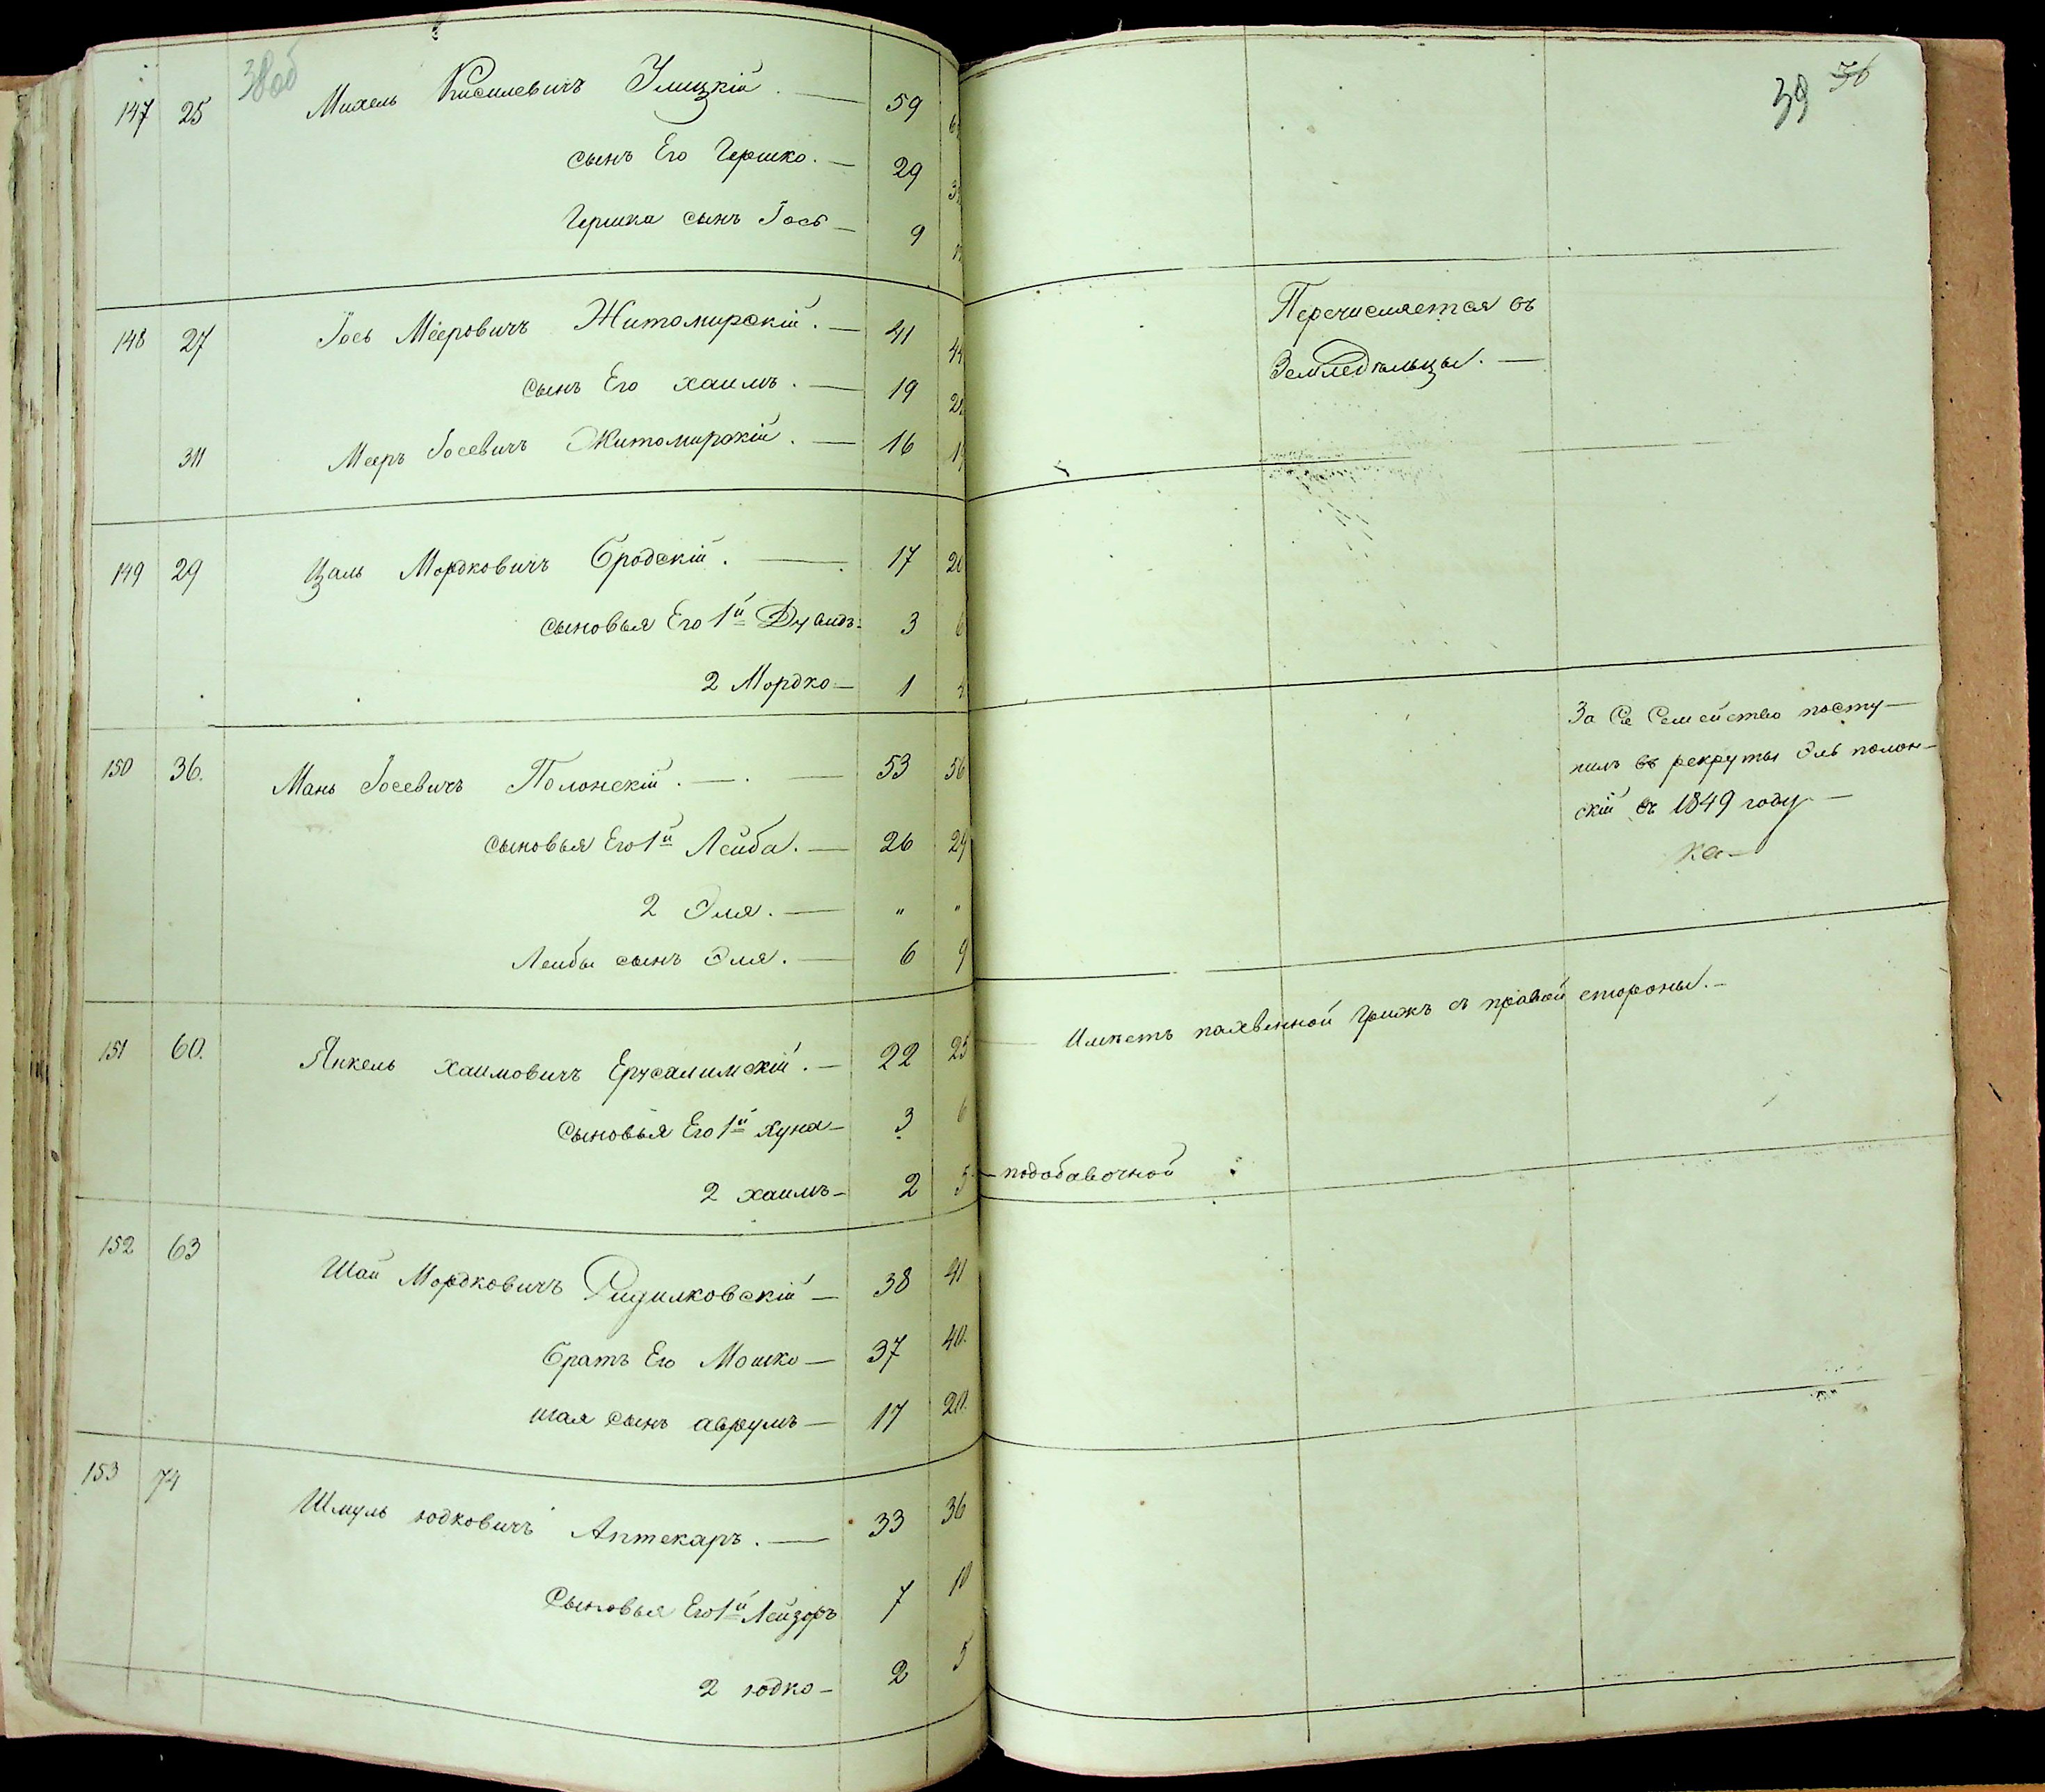 38об
147 25 Михель Кисилевичъ Улицкій. — 59
сынъ Его Гершко. — 29
Гершка сынъ Іось — 9
148 27 Іось Мееровичъ Житомирскій. — 41 44
сынъ Его хаимъ. — 19 22
311 Мееръ Іосевичъ Житомирскій. — 16 19
149 29 Цаль Мордковичъ Бродскій. — 17 20
сыновья Его 1й Дувидъ — 3 6
2 Мордко — 1 4
150 36. Мань Іосевичъ Полонскій. — 53 56
сыновья Его 1й Лейба. — 26 29
2 Эля. — " "
Лейбы сынъ Эля. — 6 9
151 60. Янкель хаимовичъ Ерусалимскій. — 22 25
Сыновья Его 1й Хуна — 3 6
2 хаимъ — 2 5
152 63 Шая Мордковичъ — 38 41
Братъ Его Мошко — 37 40.
шая сынъ аврумъ — 17 20.
153 74 Шмуль юдковичъ Аптекаръ. — 33 36
Сыновья Его 1й Лейзоръ 7 10
2 юдко — 2 5
39 36
Перечисляется въ
Земледельцы. —
За Сіе Семейство посту—
пилъ въ рекруты Эль полон—
скій въ 1849 году —
Имѣетъ паховенной грижъ съ правой стороны. —
— подобавочной